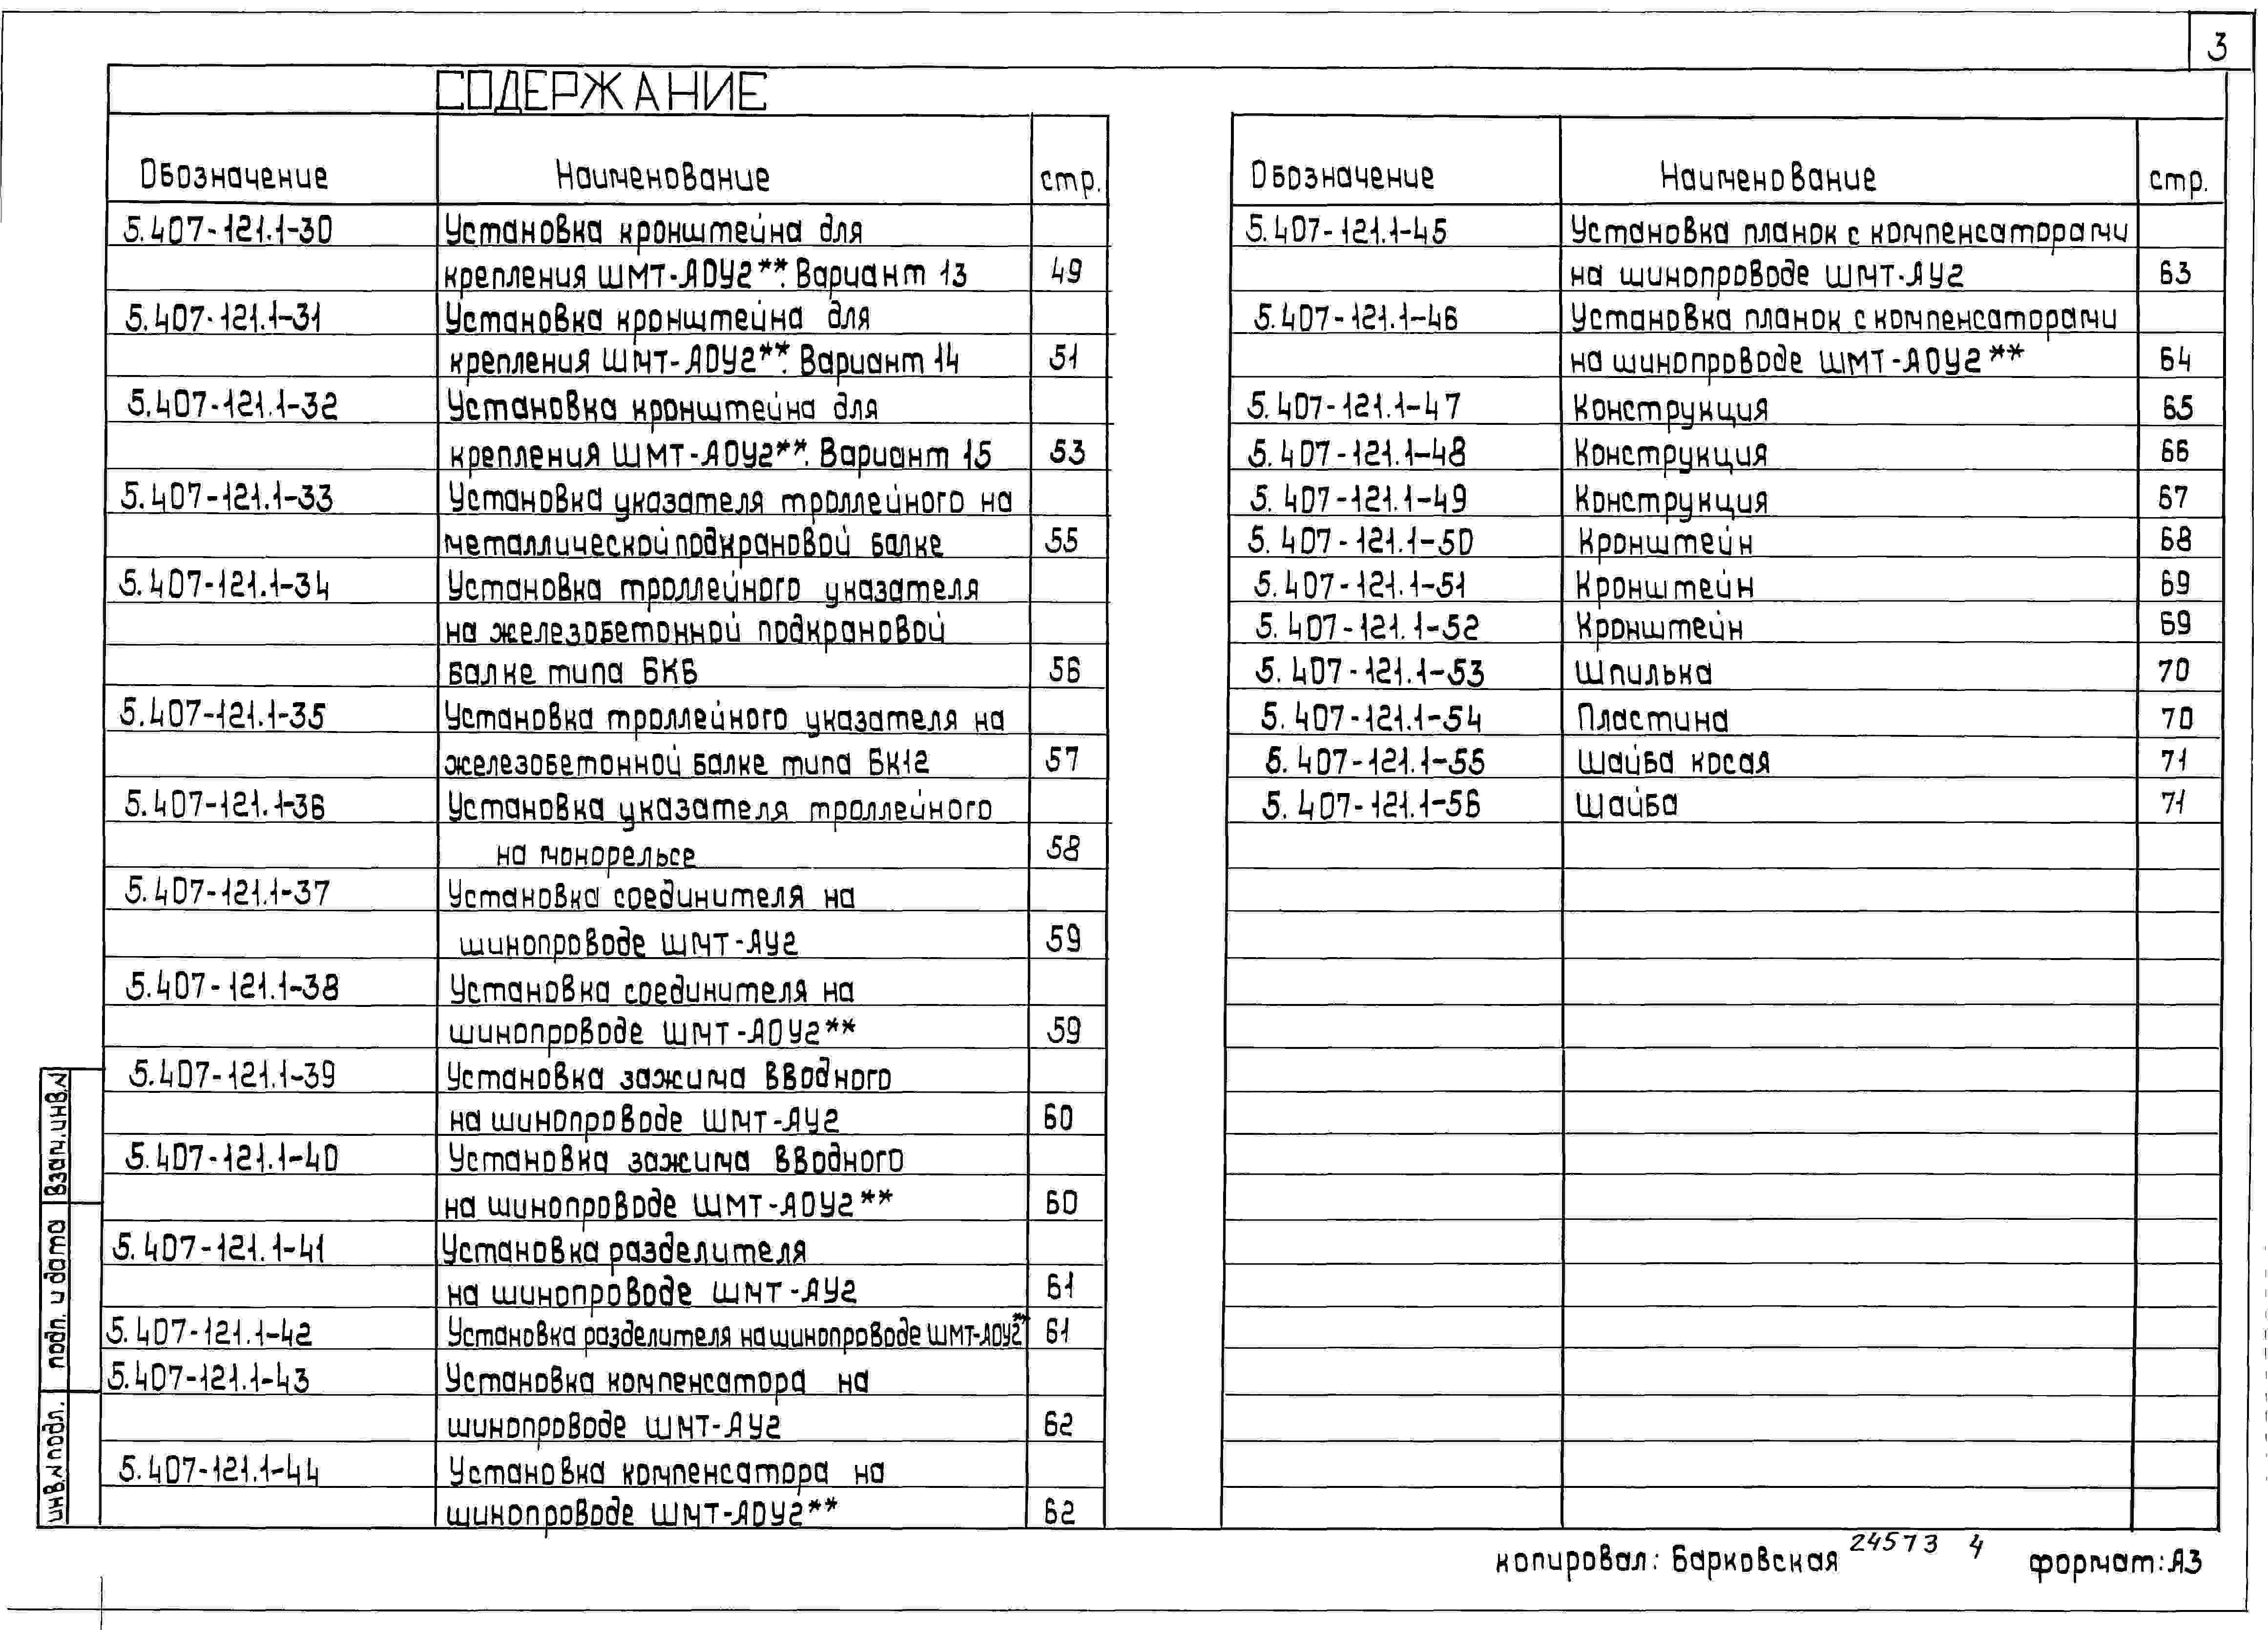 3
СОДЕРЖАНИЕ
Обозначение Наименование стр.
5.407-121.1-30 Установка кронштейна для
крепления ШМТ-АОУ2**. Вариант 13 49
5.407-121.1-31 Установка кронштейна для
крепления ШМТ-АОУ2**. Вариант 14 51
5.407-121.1-32 Установка кронштейна для
крепления ШМТ-АОУ2**. Вариант 15 53
5.407-121.1-33 Установка указателя троллейного на
металлической подкрановой балке 55
5.407-121.1-34 Установка троллейного указателя
на железобетонной подкрановой
балке типа БК6 56
5.407-121.1-35 Установка троллейного указателя на
железобетонной балке типа БК12 57
5.407-121.1-36 Установка указателя троллейного
на монорельсе 58
5.407-121.1-37 Установка соединителя на
шинопроводе ШМТ-АУ2 59
5.407-121.1-38 Установка соединителя на
шинопроводе ШМТ-АОУ2** 59
5.407-121.1-39 Установка зажима вводного
на шинопроводе ШМТ-АУ2 60
5.407-121.1-40 Установка зажима вводного
на шинопроводе ШМТ-АОУ2** 60
5.407-121.1-41 Установка разделителя
на шинопроводе ШМТ-АУ2 61
5.407-121.1-42 Установка разделителя на шинопроводе ШМТ-АОУ2** 61
5.407-121.1-43 Установка компенсатора на
шинопроводе ШМТ-АУ2 62
5.407-121.1-44 Установка компенсатора на
шинопроводе ШМТ-АОУ2** 62
Обозначение Наименование стр.
5.407-121.1-45 Установка планок с компенсаторами
на шинопроводе ШМТ-АУ2 63
5.407-121.1-46 Установка планок с компенсаторами
на шинопроводе ШМТ-АОУ2** 64
5.407-121.1-47 Конструкция 65
5.407-121.1-48 Конструкция 66
5.407-121.1-49 Конструкция 67
5.407-121.1-50 Кронштейн 68
5.407-121.1-51 Кронштейн 69
5.407-121.1-52 Кронштейн 69
5.407-121.1-53 Шпилька 70
5.407-121.1-54 Пластина 70
5.407-121.1-55 Шайба косая 71
5.407-121.1-56 Шайба 71
Взам.инв.№
подп. и дата
инв.№подл.
копировал: Барковская 24573 4 формат: А3